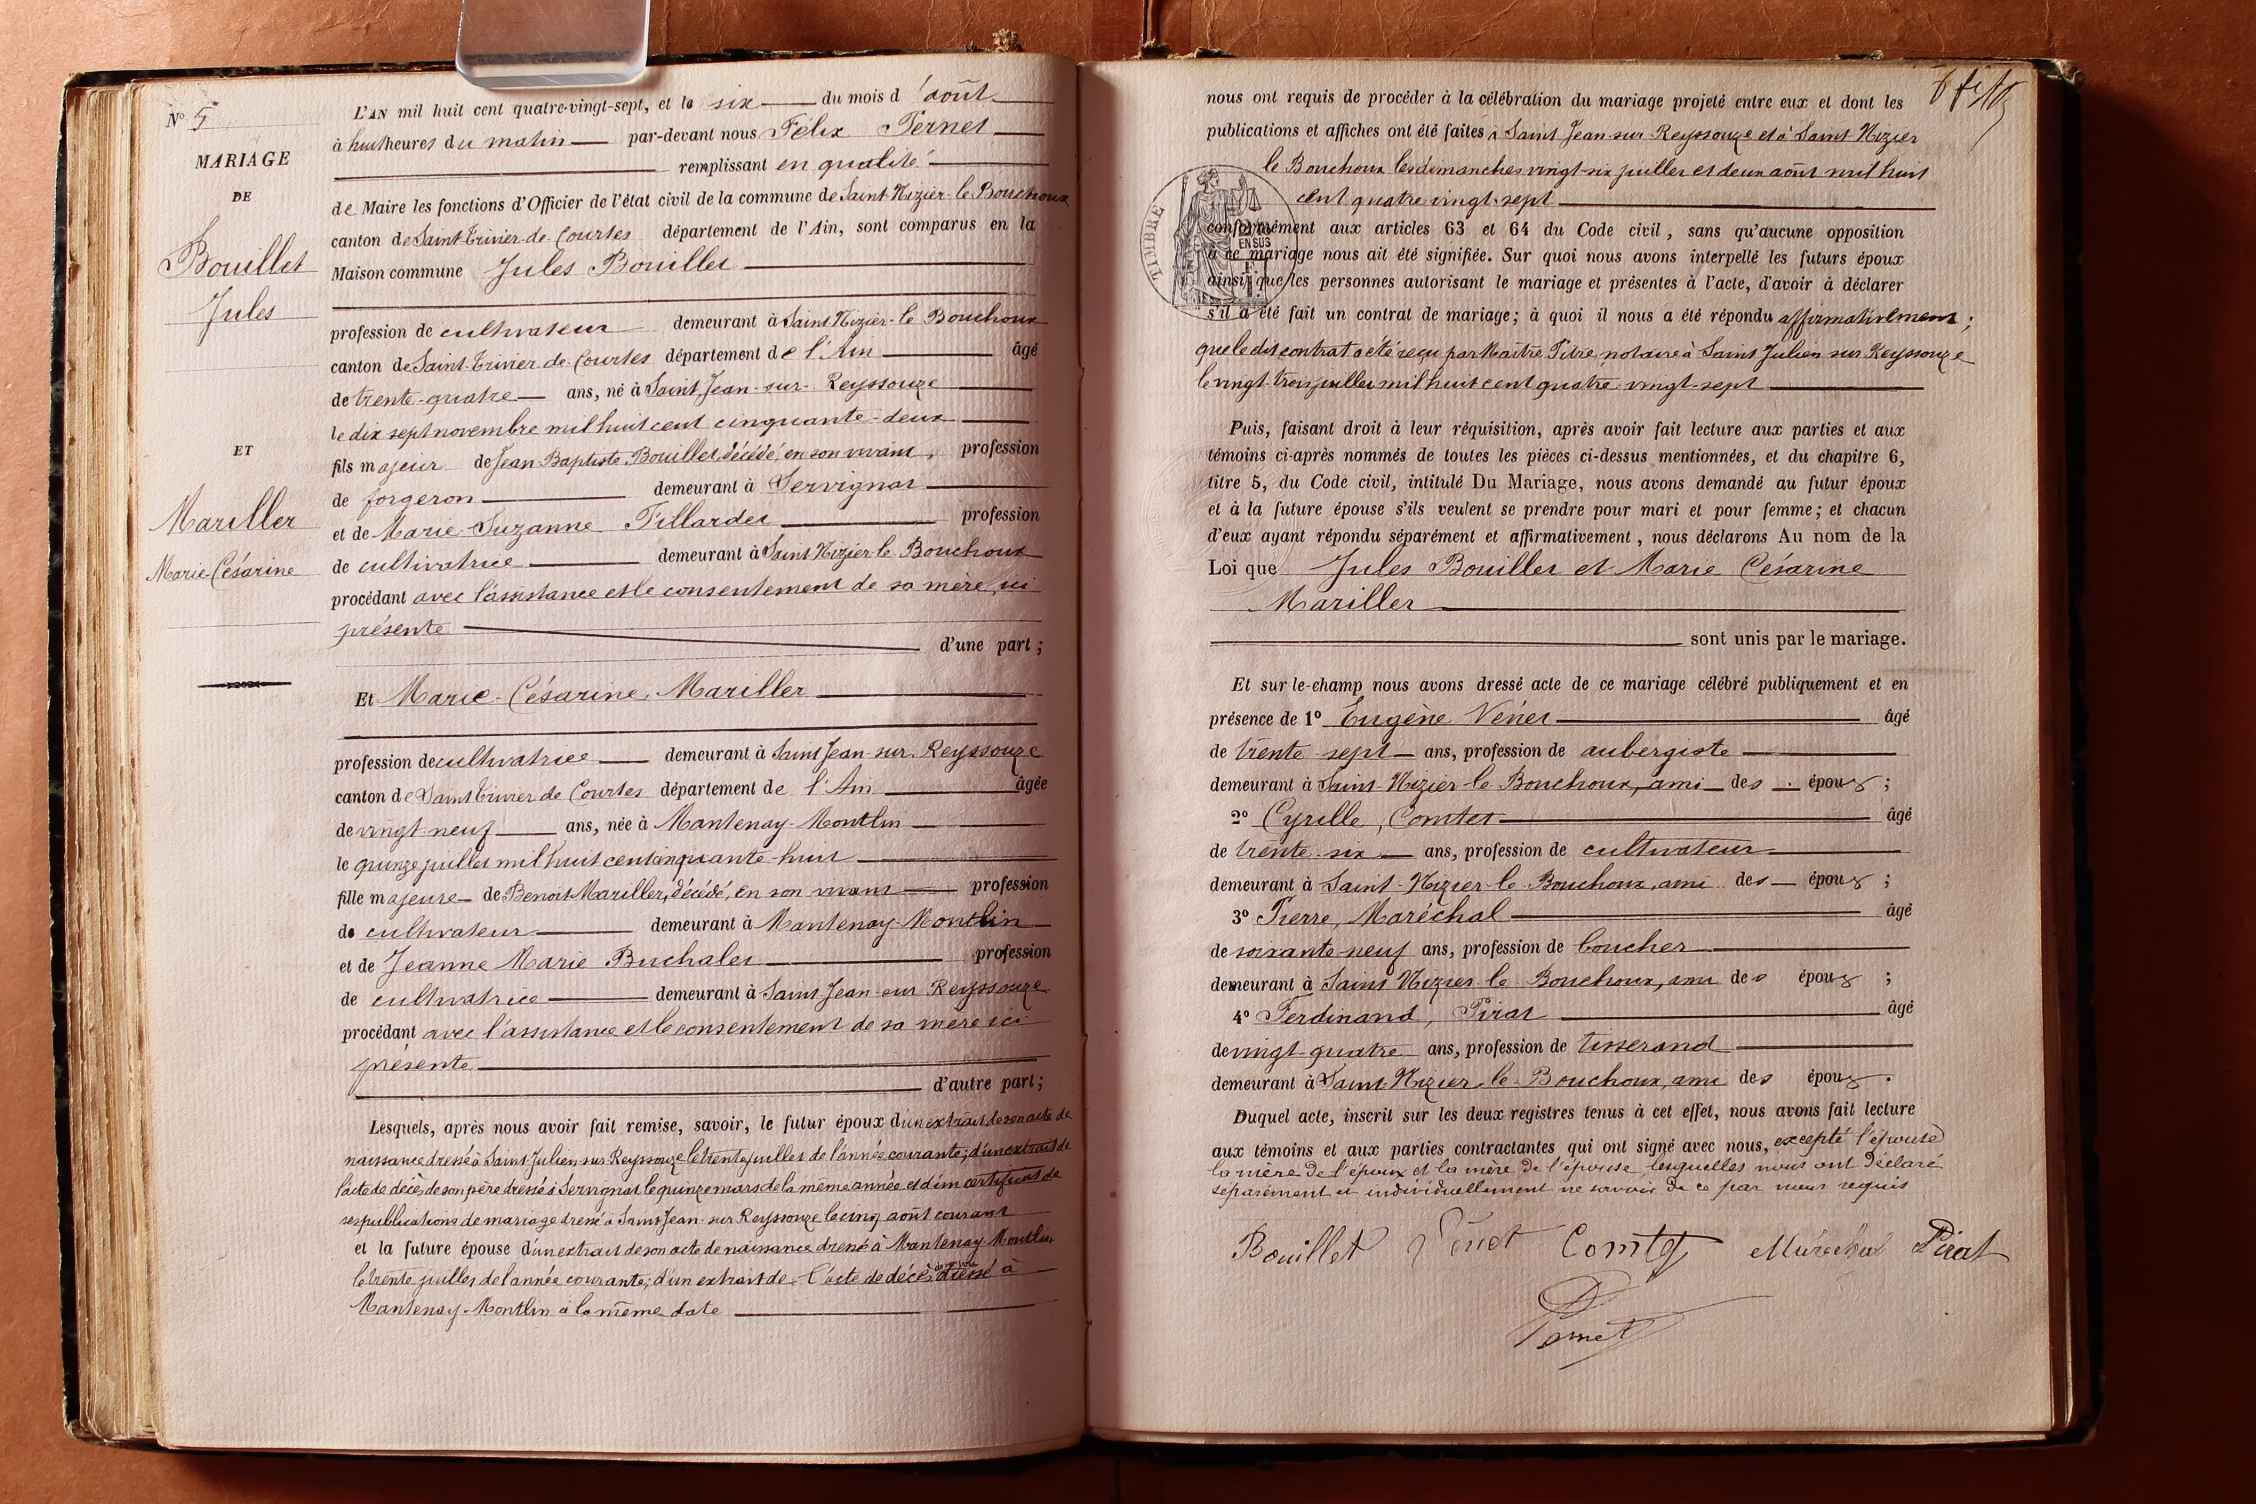 N° 5
MARIAGE
DE
Bouillet
Jules
ET
Mariller
Marie Césarine
L'AN mil huit cent quatre-vingt-sept, et le six du mois d'août
à huit heures du matin par-devant nous Félix Pernet
remplissant en qualité
de Maire les fonctions d'Officier de l'état civil de la commune de Saint-Nizier-le-Bouchoux
canton de Saint-Trivier-de-Courtes département de l'Ain, sont comparus en la
Maison commune Jules Bouillet
profession de cultivateur demeurant à Saint Nizier-le Bouchoux
canton de Saint-Trivier-de-Courtes département de l'Ain âgé
de trente-quatre ans, né à Saint Jean-sur-Reyssouze
le dix sept novembre mil huit cent cinquante-deux
fils majeur de Jean Baptiste Bouillet, décédé, en son vivant, profession
de forgeron demeurant à Servignat
et de Marie-Suzanne Tillardet profession
de cultivatrice demeurant à Saint Nizier le Bouchoux
procédant avec l'assistance et le consentement de sa mère, ici
présente
d'une part ;
Et Marie-Césarine, Mariller
profession de cultivatrice demeurant à Saint Jean-sur-Reyssouze
canton de Saint Trivier de Courtes département de l'Ain âgée
de vingt-neuf ans, née à Mantenay-Montlin
le quinze juillet mil huit cent cinquante-huit
fille majeure de Benoit Mariller, décédé, en son vivant profession
de cultivateur demeurant à Mantenay-Montlin
et de Jeanne Marie Buchalet profession
de cultivatrice demeurant à Saint Jean-sur Reyssouze
procédant avec l'assistance et le consentement de sa mère ici
présente
d'autre part ;
Lesquels, après nous avoir fait remise, savoir, le futur époux d'un extrait de son acte de
naissance dressé à Saint Julien sur Reyssouze le trente juillet de l'année courante; d'un extrait de
l'acte de décès de son père dressé à Servignat le quinze mars de la même année et d'un certificat de
ses publications de mariage dressé à Saint Jean-sur Reyssouze le cinq août courant
et la future épouse d'un extrait de son acte de naissance dressé à Mantenay-Montlin
le trente juillet de l'année courante; d'un extrait de l'acte de décès dressé à
Mantenay-Montlin à la même date
nous ont requis de procéder à la célébration du mariage projeté entre eux et dont les
publications et affiches ont été faites à Saint Jean-sur-Reyssouze et à Saint-Nizier
le Bouchoux les dimanches vingt-six juillet et deux août mil huit
cent quatre vingt-sept
TIMBRE
EN SUS
conformément aux articles 63 et 64 du Code civil, sans qu'aucune opposition
à ce mariage nous ait été signifiée. Sur quoi nous avons interpellé les futurs époux
ainsi que les personnes autorisant le mariage et présentes à l'acte, d'avoir à déclarer
s'il a été fait un contrat de mariage; à quoi il nous a été répondu affirmativement;
que le dit contrat a été reçu par Maître Pitre, notaire à Saint Julien sur Reyssouze
le vingt trois juillet mil huit cent quatre-vingt-sept
Puis, faisant droit à leur réquisition, après avoir fait lecture aux parties et aux
témoins ci-après nommés de toutes les pièces ci-dessus mentionnées, et du chapitre 6,
titre 5, du Code civil, intitulé Du Mariage, nous avons demandé au futur époux
et à la future épouse s'ils veulent se prendre pour mari et pour femme; et chacun
d'eux ayant répondu séparément et affirmativement, nous déclarons Au nom de la
Loi que Jules Bouillet et Marie Césarine
Mariller
sont unis par le mariage.
Et sur-le-champ nous avons dressé acte de ce mariage célébré publiquement et en
présence de 1° Eugène Vénet âgé
de trente-sept ans, profession de aubergiste
demeurant à Saint-Nizier-le Bouchoux, ami des époux ;
2° Cyrille, Comtet âgé
de trente-six ans, profession de cultivateur
demeurant à Saint-Nizier-le Bouchoux, ami des époux ;
3° Pierre, Maréchal âgé
de soixante-neuf ans, profession de boucher
demeurant à Saint Nizier le Bouchoux, ami des époux ;
4° Ferdinand, Pirat âgé
de vingt-quatre ans, profession de tisserand
demeurant à Saint-Nizier-le-Bouchoux, ami des époux.
Duquel acte, inscrit sur les deux registres tenus à cet effet, nous avons fait lecture
aux témoins et aux parties contractantes qui ont signé avec nous, excepté l'épouse
la mère de l'époux et la mère de l'épouse lesquelles nous ont déclaré
séparément et individuellement ne savoir de ce par nous requis
Bouillet Vénet Comtet Maréchal Pirat
Pernet